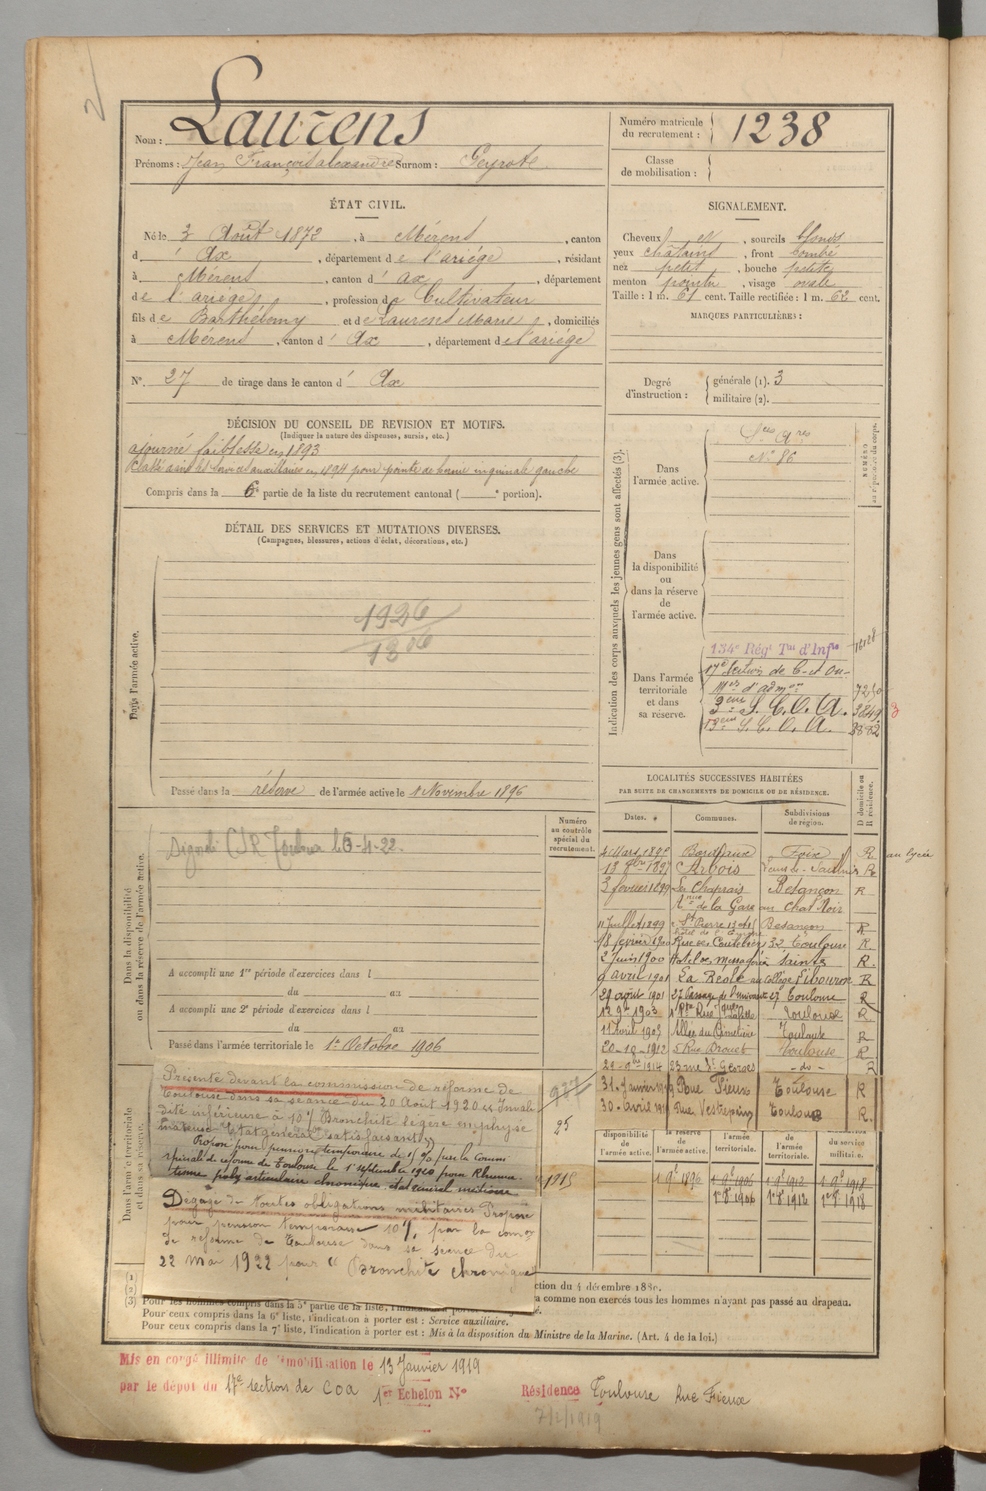 Nom : Laurens
Prénoms : Jean François alexandre Surnom : Peyrote
Numéro matricule du recrutement : 1238
Classe de mobilisation :
ÉTAT CIVIL.
Né le 3 Août 1872, à Mérens, canton
d' Ax, département de l'ariège, résidant
à Mérens, canton d' ax, département
de l'ariège, profession de Cultivateur
fils de Barthélemy et de Laurens Marie, domiciliés
à Mérens, canton d' Ax, département de l'ariège
N° 27 de tirage dans le canton d' Ax
SIGNALEMENT.
Cheveux N, sourcils blonds
yeux châtains, front bombé
nez petit, bouche petite
menton pointu, visage ovale
Taille : 1 m. 61 cent. Taille rectifiée : 1 m. 62 cent.
MARQUES PARTICULIÈRES :
Degré d'instruction : générale (1). 3
militaire (2).
DÉCISION DU CONSEIL DE REVISION ET MOTIFS.
(Indiquer la nature des dispenses, sursis, etc.)
ajourné faiblesse en 1893
Classé dans les services auxiliaires en 1894 pour pointe de hernie inguinale gauche
Compris dans la 6e partie de la liste du recrutement cantonal ( e portion).
DÉTAIL DES SERVICES ET MUTATIONS DIVERSES.
(Campagnes, blessures, actions d'éclat, décorations, etc.)
Dans l'armée active.
1926
1306
Passé dans la réserve de l'armée active le 1 Novembre 1896
Indication des corps auxquels les jeunes gens sont affectés (3).
NUMÉRO au répertoire du corps.
Dans l'armée active.
Sces Ares
N° 86
Dans la disponibilité ou dans la réserve de l'armée active.
Dans l'armée territoriale et dans sa réserve.
134e Régt Tal d'Infie
17e Section de C. et Ou-
Mers d'admon
9ème S. C. O. A. 3849
17ème S. C. O. A.
Dans la disponibilité ou dans la réserve de l'armée active.
Numéro au contrôle spécial du recrutement.
Signalé CSR Toulouse le 6-4-22
A accompli une 1re période d'exercices dans l
du au
A accompli une 2e période d'exercices dans l
du au
Passé dans l'armée territoriale le 1er Octobre 1906
LOCALITÉS SUCCESSIVES HABITÉES
PAR SUITE DE CHANGEMENTS DE DOMICILE OU DE RÉSIDENCE.
Dates. Communes. Subdivisions de région. D domicile ou R résidence.
4 Mars 1895 Bordeaux Foix R au lycée
18 8bre 1897 Arbois Lons-le-Saulnier R
3 février 1899 La Chaprais Besançon R
r. de la Gare au Chat Noir
11 Juillet 1899 St Pierre Besançon R
18 février 1900 Rue des Couteliers 32 Toulouse R.
2 Juin 1900 Hotel des Messageries Saintes R.
9 avril 1901 La Réole au Collège Libourne R
29 août 1901 27 Passage de l'université 27 Toulouse R
1903 Toulouse R
11 avril 1905 Allée du Cimetière Toulouse R
20-10-1912 5 Rue Drouet Toulouse R
1914 23 rue St Georges -do- R
31. Janvier 9 Rue Fieux Toulouse R
30. avril Rue Vestrepain Toulouse R.
disponibilité de l'armée active. la réserve de l'armée active. l'armée territoriale. de l'armée territoriale. du service militaire.
1 9e 1896 1 9e 1906 1 9e 1912 1 9e 1918
1er 8 1906 1er 8 1912 1er 8 1918
Dans l'armée territoriale et dans sa réserve.
927
25
1915
Présenté devant la commission de réforme de
Toulouse dans sa séance du 20 Août 1920 Invali-
dité inférieure à 10% Bronchite légère emphysé-
mateuse Etat général satisfaisant
Proposé pour pension temporaire de % par la Commi
spéciale de réforme de Toulouse le 1er septembre 1920 pour Rhuma-
tisme poly articulaire chronique état général médiocre
Dégagé de toutes obligations militaires Proposé
pour pension temporaire 10%, par la comon
de réforme de Toulouse dans sa séance du
22 mai 1922 pour "Bronchite chronique"
(1)
(2)
(3)
ction du 4 décembre 1889.
a comme non exercés tous les hommes n'ayant pas passé au drapeau.
Pour les hommes compris dans la 5e partie de la liste, l'indication à porter
Pour ceux compris dans la 6e liste, l'indication à porter est : Service auxiliaire.
Pour ceux compris dans la 7e liste, l'indication à porter est : Mis à la disposition du Ministre de la Marine. (Art. 4 de la loi.)
Mis en congé illimité de démobilisation le 13 Janvier 1919
par le dépôt du 17e section de COA 1er Echelon N° Résidence Toulouse Rue Fieux
7/2/1919